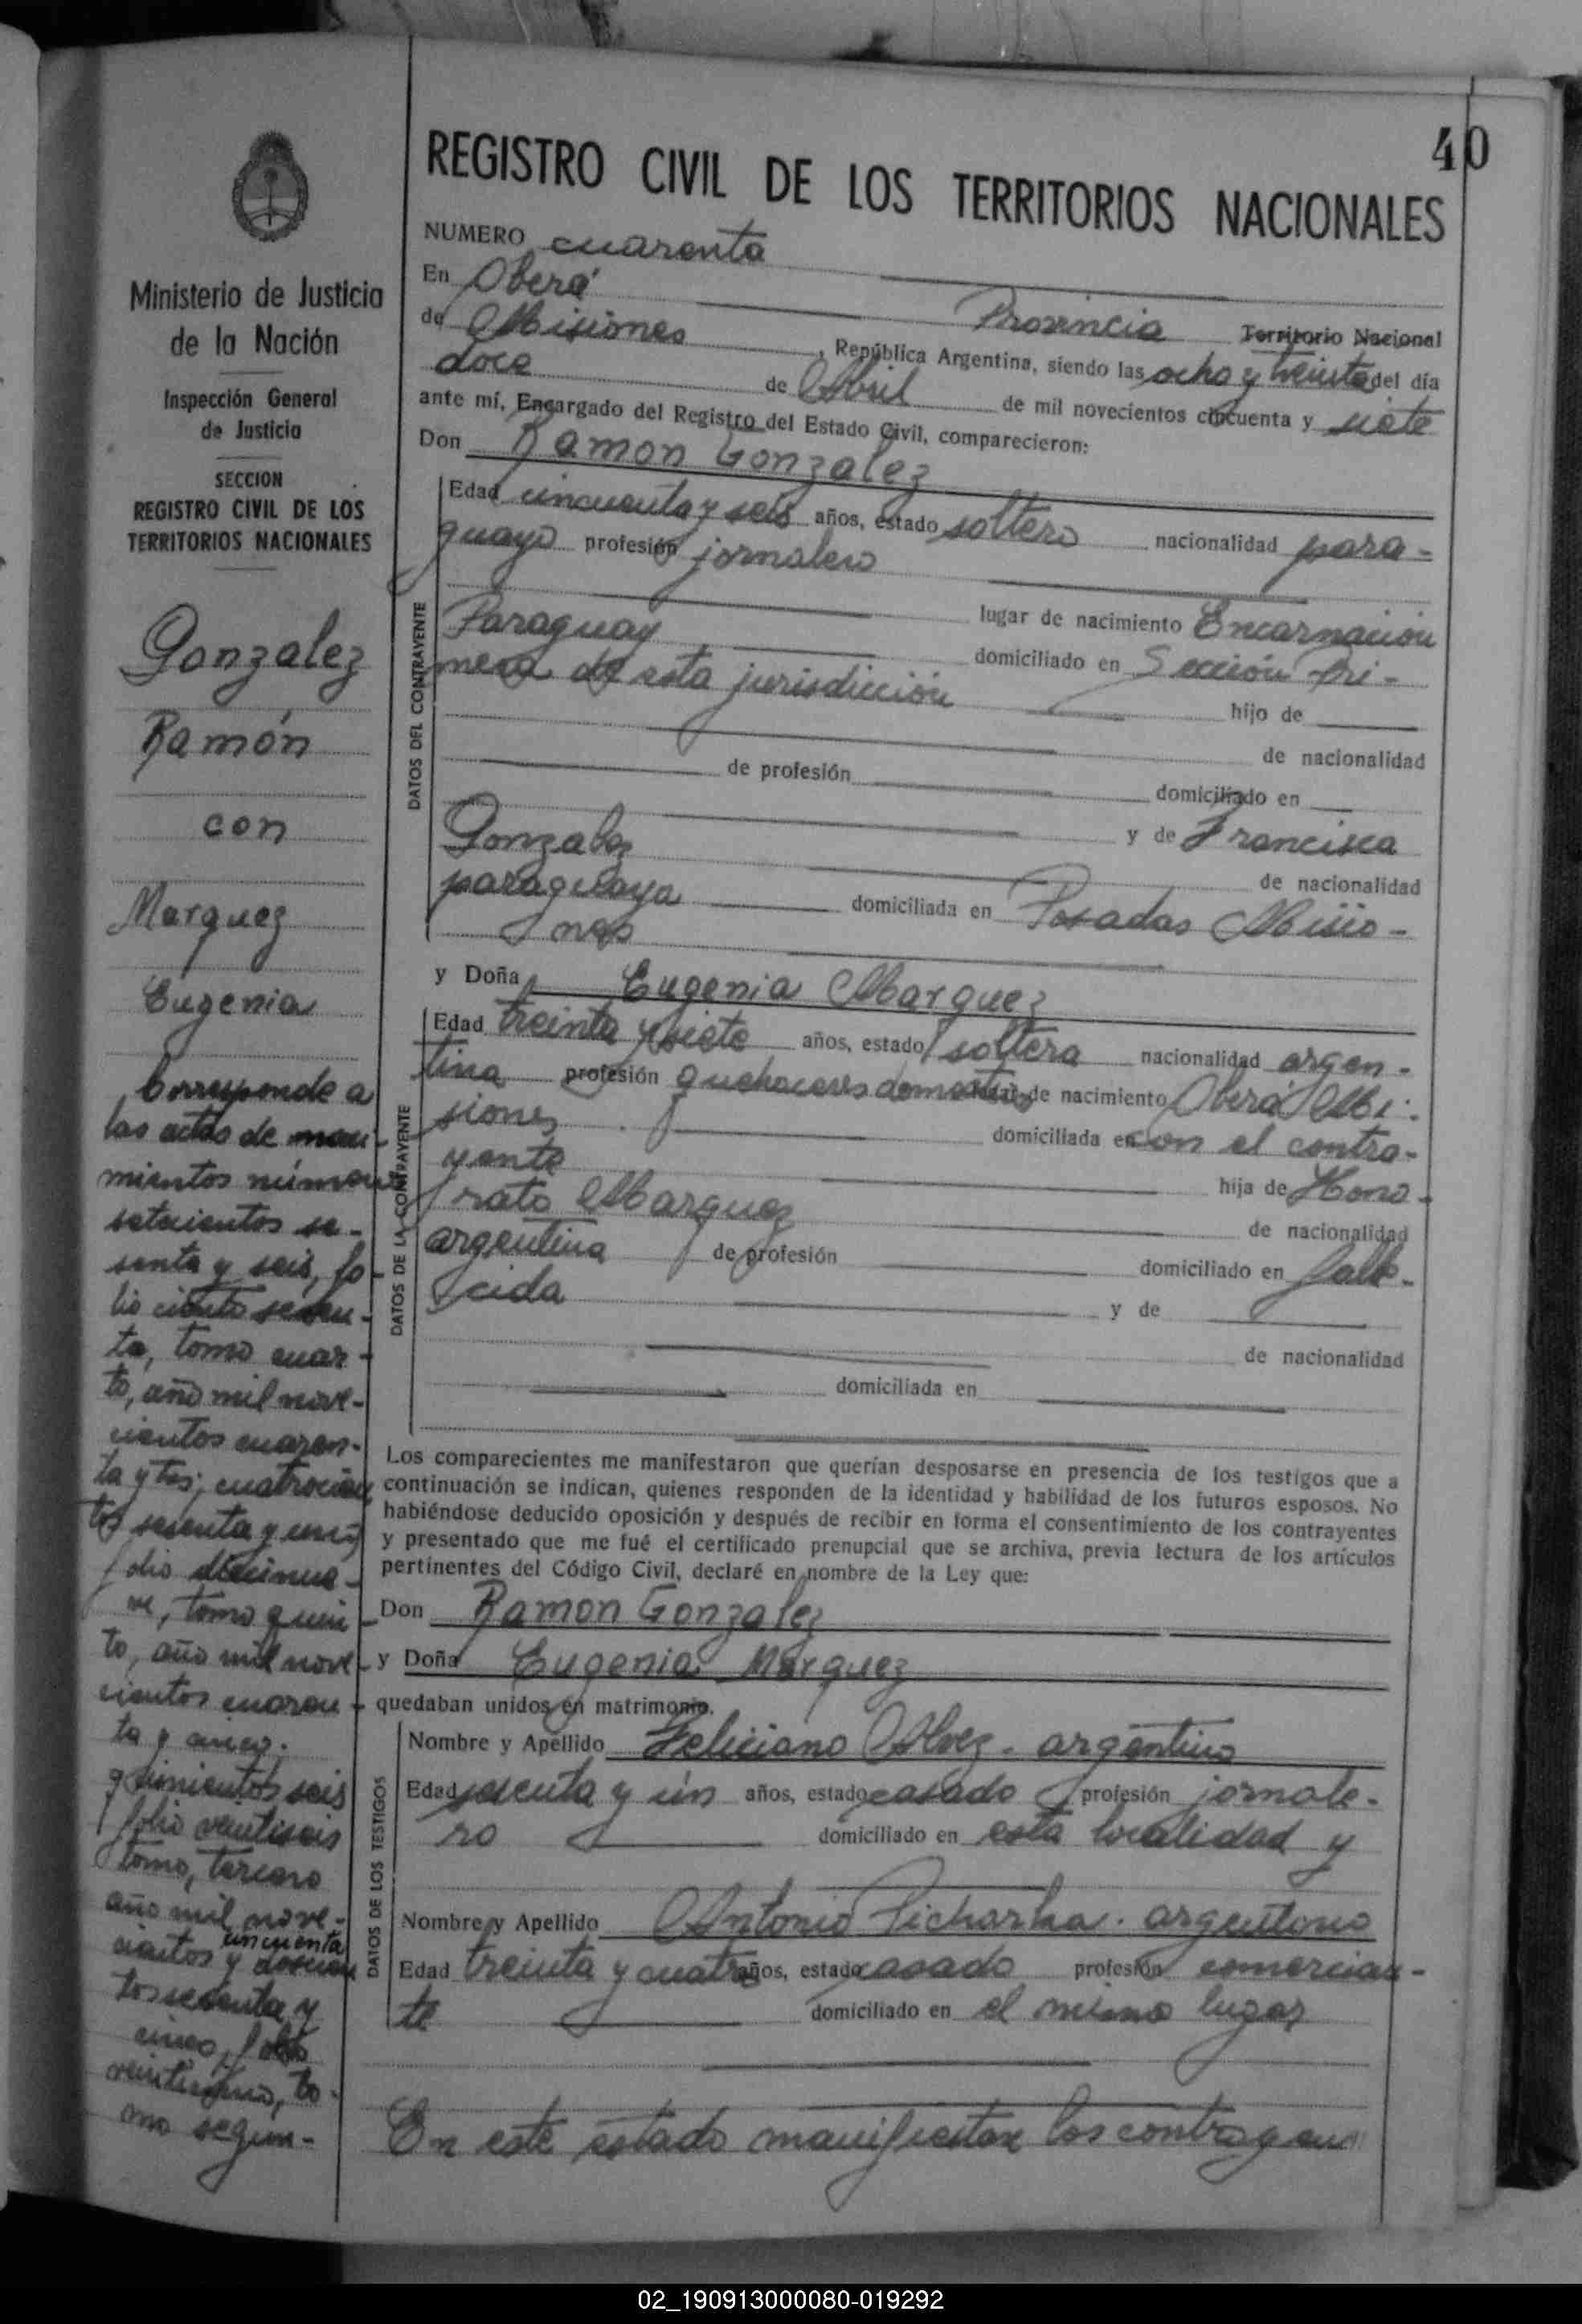 40
REGISTRO CIVIL DE LOS TERRITORIOS NACIONALES
Ministerio de Justicia
de la Nación
Inspección General
de Justicia
SECCION
REGISTRO CIVIL DE LOS
TERRITORIOS NACIONALES
Gonzalez
Ramón
con
Marquez
Eugenia
Corresponde a
las actas de naci-
mientos número
setecientos se-
senta y seis, fo-
lio ciento sesen-
ta, tomo cuar-
to, año mil nove-
cientos cuaren-
ta y tres; cuatrocien
tos sesenta y uno
folio diecinue-
ve, tomo quin-
to, año mil nove-
cientos cuaren-
ta y cinco;
quinientos seis
folio veintiseis
tomo, tercero
año mil nove-
cincuenta
cientos y doscien
tos sesenta y
cinco, folio
to-
mo segun-
NUMERO cuarenta
En Oberá
de Misiones Provincia Territorio Nacional
, República Argentina, siendo las ocho y treinta del día
doce de Abril de mil novecientos cincuenta y siete
ante mí, Encargado del Registro del Estado Civil, comparecieron:
Don Ramon Gonzalez
DATOS DEL CONTRAYENTE
Edad cincuenta y seis años, estado soltero nacionalidad para-
guayo profesión jornalero
lugar de nacimiento Encarnación
Paraguay domiciliado en Sección Pri-
mera de esta jurisdicción hijo de
de nacionalidad
de profesión domiciliado en
y de Francisca
Gonzalez de nacionalidad
paraguaya domiciliada en Posadas Misio-
nes
y Doña Eugenia Marquez
DATOS DE LA CONTRAYENTE
Edad treinta y siete años, estado soltera nacionalidad argen-
tina profesión quehaceres domesticos lugar de nacimiento Oberá Mi-
siones domiciliada en con el contra-
yente hija de Hono-
rato Marquez de nacionalidad
argentina de profesión domiciliado en falle-
cida y de
de nacionalidad
domiciliada en
Los comparecientes me manifestaron que querían desposarse en presencia de los testigos que a
continuación se indican, quienes responden de la identidad y habilidad de los futuros esposos. No
habiéndose deducido oposición y después de recibir en forma el consentimiento de los contrayentes
y presentado que me fué el certificado prenupcial que se archiva, previa lectura de los artículos
pertinentes del Código Civil, declaré en nombre de la Ley que:
Don Ramon Gonzalez
y Doña Eugenia Marquez
quedaban unidos en matrimonio.
DATOS DE LOS TESTIGOS
Nombre y Apellido Feliciano Alvez - argentino
Edad sesenta y un años, estado casado profesión jornale-
ro domiciliado en esta localidad y
Nombre y Apellido Antonio argentino
Edad treinta y cuatro años, estado casado profesión comercian-
te domiciliado en el mismo lugar
En este estado manifiestan los contrayen
02_190913000080-019292